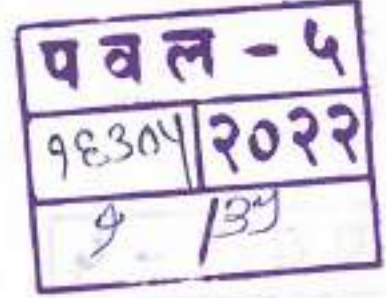 प व ल - ५
१६३०५ २०२२
१ / ३५